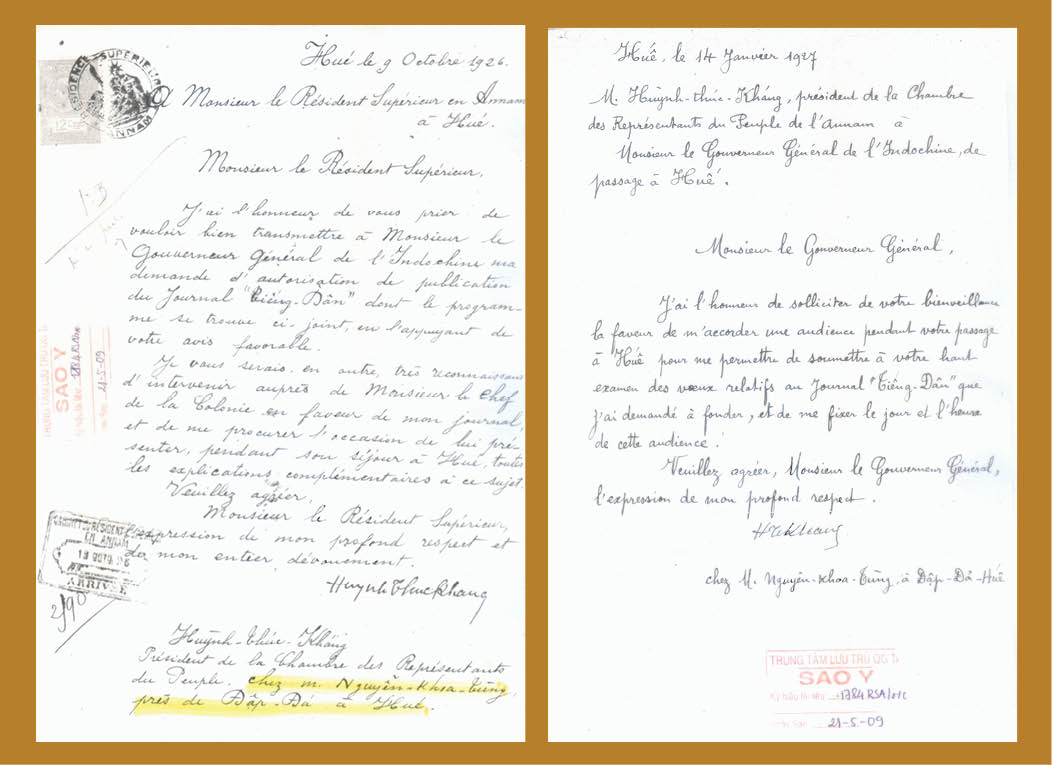 Hué le 9 Octobre 1926.
RESIDENCE SUPERIEURE
ANNAM
A Monsieur le Résident Supérieur en Annam
à Hué.
Monsieur le Résident Supérieur,
1:3
J'ai l'honneur de vous prier de
vouloir bien transmettre à Monsieur le
Gouverneur Général de l'Indochine ma
demande d'autorisation de publication
du Journal "Tiếng-Dân" dont le program-
me se trouve ci-joint, en l'appuyant de
votre avis favorable.
Je vous serais, en outre, très reconnaissant
d'intervenir auprès de Monsieur le Chef
de la Colonie en faveur de mon journal,
et de me procurer l'occasion de lui pré-
senter, pendant son séjour à Hué, toutes
les explications complémentaires à ce sujet.
Veuillez agréer,
Monsieur le Résident Supérieur,
l'expression de mon profond respect et
de mon entier dévouement.
HuynhThucKhang
TRUNG TÂM LƯU TRỮ
SAO Y
21-5-09
RÉSIDENT
EN ANNAM
ARRIVÉE
2/90
Huỳnh-Thúc-Kháng
Président de la Chambre des Représentants
du Peuple. chez M. Nguyễn-Khoa-Tùng,
près de Đập-Đá à Hué.
Huế, le 14 Janvier 1927
M. Huỳnh-thúc-Kháng, président de la Chambre
des Représentants du Peuple de l'Annam à
Monsieur le Gouverneur Général de l'Indochine, de
passage à Huế.
Monsieur le Gouverneur Général,
J'ai l'honneur de solliciter de votre bienveillance
la faveur de m'accorder une audience pendant votre passage
à Huế pour me permettre de soumettre à votre haut
examen des vœux relatifs au Journal "Tiếng-Dân" que
j'ai demandé à fonder, et de me fixer le jour et l'heure
de cette audience.
Veuillez agréer, Monsieur le Gouverneur Général,
l'expression de mon profond respect.
HTKhang
chez M. Nguyễn-Khoa-Tùng, à Đập-Đá-Huế
TRUNG TÂM LƯU TRỮ QG
SAO Y
Ký hiệu 1784RSA/HC
21-5-09